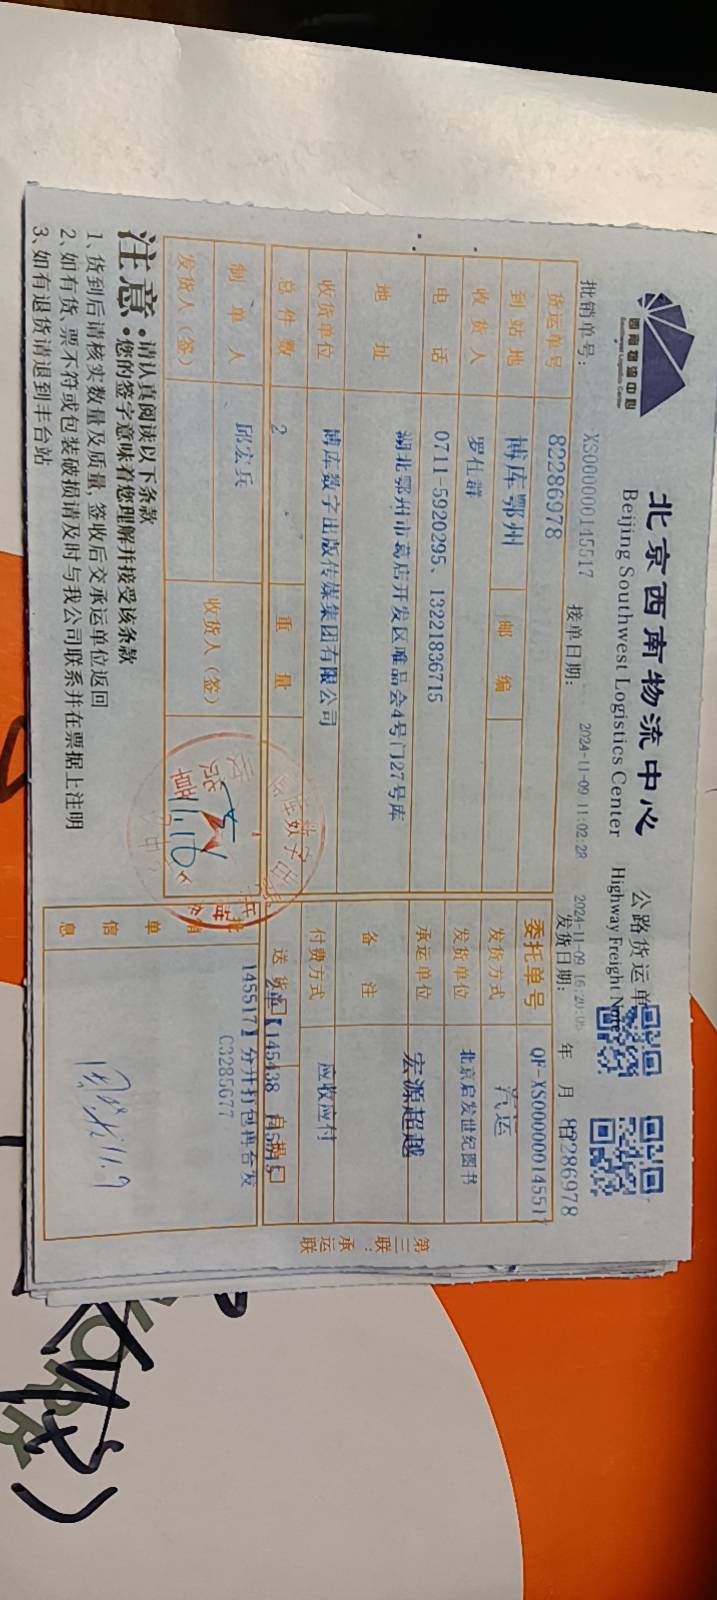 西南物流中心
Southwest Logistics Center
北京西南物流中心 公路货运单
Beijing Southwest Logistics Center Highway Freight Note
批销单号： XS000000145517 接单日期： 2024-11-09 11:02:28 2024-11-09 16:20:05
发货日期： 年 月 日 82286978
货运单号 82286978 委托单号 QF-XS000000145517
到站地 博库鄂州 邮编 发货方式 汽运
收货人 罗仕群 发货单位 北京启发世纪图书
电话 0711-5920295、13221836715 承运单位 宏源超越
地址 湖北鄂州市葛店开发区唯品会4号门27号库 备注
收货单位 博库数字出版传媒集团有限公司 付费方式 应收应付
总件数 2 重量 送货 自提
2单【145438
145517】分开打包再合发
C3285677
制单人 邱宏兵 收货人（签） 11.16
发货人（签）
单信息
注意
·请认真阅读以下条款
·您的签字意味着您理解并接受该条款
1、货到后请核实数量及质量，签收后交承运单位返回
2、如有货、票不符或包装破损请及时与我公司联系并在票据上注明
3、如有退货请退到丰台站
第三联：承运联